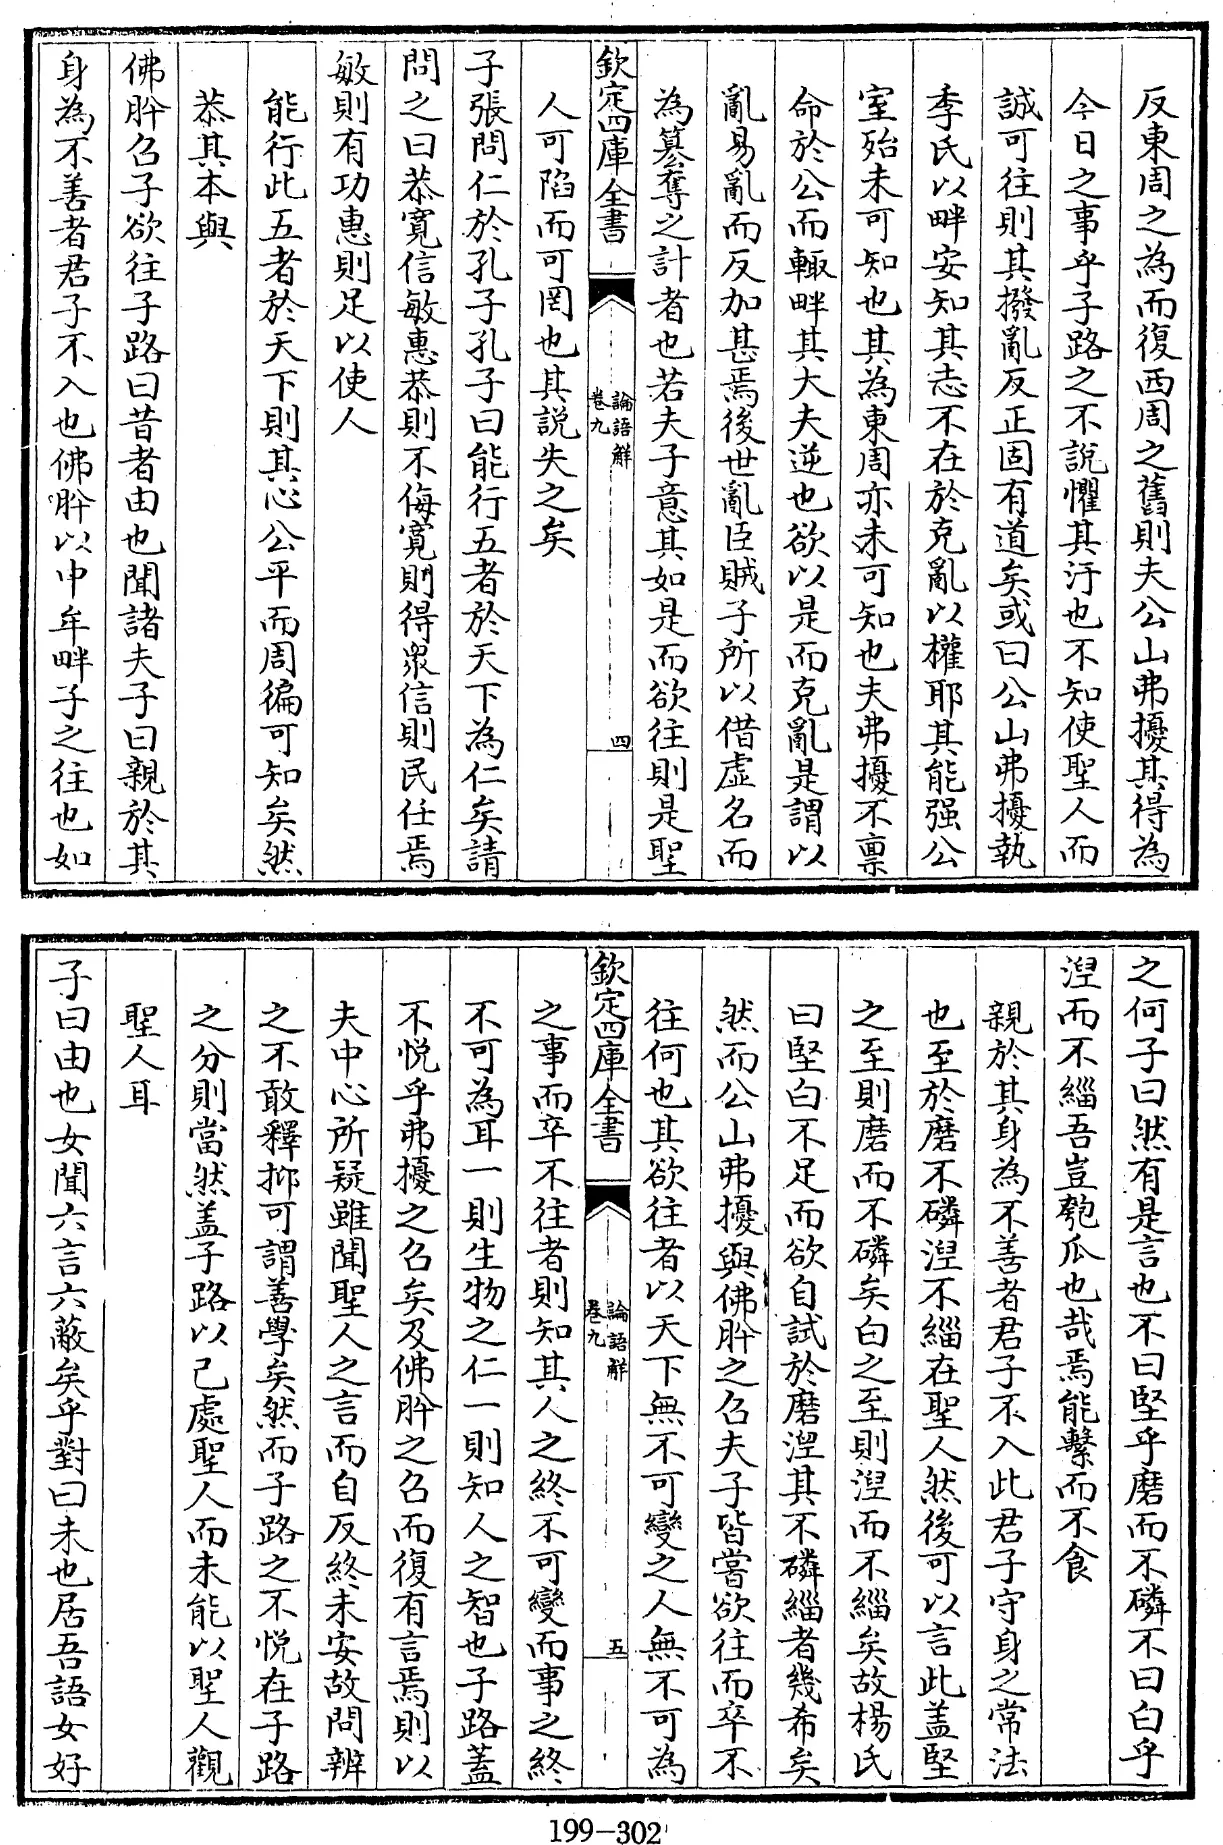 反東周之為而復西周之舊則夫公山弗擾其得為
今日之事乎子路之不說懼其汙也不知使聖人而
誠可往則其撥亂反正固有道矣或曰公山弗擾執
季氏以畔安知其志不在於克亂以權耶其能强公
室殆未可知也其為東周亦未可知也夫弗擾不禀
命於公而輙畔其大夫逆也欲以是而克亂是謂以
亂易亂而反加甚焉後世亂臣賊子所以借虛名而
為簒奪之計者也若夫子意其如是而欲往則是聖
欽定四庫全書
論語解
卷九
四
人可陷而可罔也其說失之矣
子張問仁於孔子孔子曰能行五者於天下為仁矣請
問之曰恭寛信敏惠恭則不侮寛則得衆信則民任焉
敏則有功惠則足以使人
能行此五者於天下則其心公平而周徧可知矣然
恭其本與
佛肸召子欲往子路曰昔者由也聞諸夫子曰親於其
身為不善者君子不入也佛肸以中牟畔子之往也如
之何子曰然有是言也不曰堅乎磨而不磷不曰白乎
湼而不緇吾豈匏瓜也哉焉能繫而不食
親於其身為不善者君子不入此君子守身之常法
也至於磨不磷湼不緇在聖人然後可以言此盖堅
之至則磨而不磷矣白之至則湼而不緇矣故楊氏
曰堅白不足而欲自試於磨湼其不磷緇者幾希矣
然而公山弗擾與佛肸之召夫子皆嘗欲往而卒不
往何也其欲往者以天下無不可變之人無不可為
欽定四庫全書
論語解
卷九
五
之事而卒不往者則知其人之終不可變而事之終
不可為耳一則生物之仁一則知人之智也子路蓋
不悦乎弗擾之召矣及佛肸之召而復有言焉則以
夫中心所疑雖聞聖人之言而自反終未安故問辨
之不敢釋抑可謂善學矣然而子路之不悦在子路
之分則當然盖子路以己處聖人而未能以聖人觀
聖人耳
子曰由也女聞六言六蔽矣乎對曰未也居吾語女好
199-302